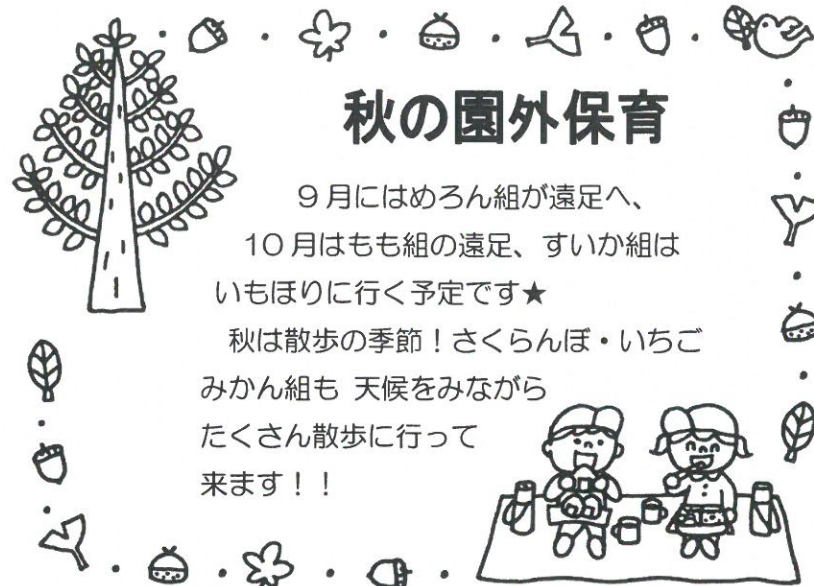 秋の園外保育
9月にはめろん組が遠足へ、
10月はもも組の遠足、すいか組は
いもほりに行く予定です★
秋は散歩の季節！さくらんぼ・いちご
みかん組も 天候をみながら
たくさん散歩に行って
来ます！！